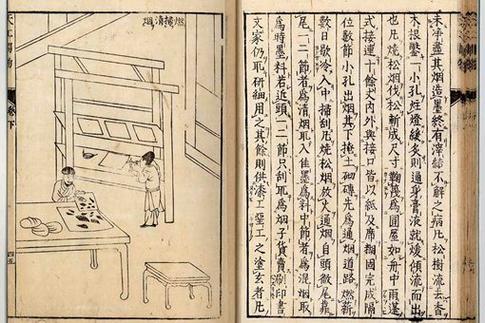 未淨盡其烟造墨終有滓結不解之病凡松樹流去香
木根鑿一小孔炷燈緩炙則通身膏液就煖傾流而出
也凡燒松烟伐松斬成尺寸鞠篾爲圓屋如舟中雨篷
式接連十餘丈內外與接口皆以紙及席糊固完成隔
位數節小孔出烟其下掩土砌磚先爲通烟道路燃薪
數日歇冷入中掃刮凡燒松烟放火通烟自頭徹尾靠
尾一二節者爲清烟取入佳墨爲料中節者爲混烟取
爲時墨料若近頭一二節只刮取爲烟子貨賣刷印書
文家仍取研細用之其餘則供漆工堊工之塗玄者凡
燃掃清烟
天工開物
卷下